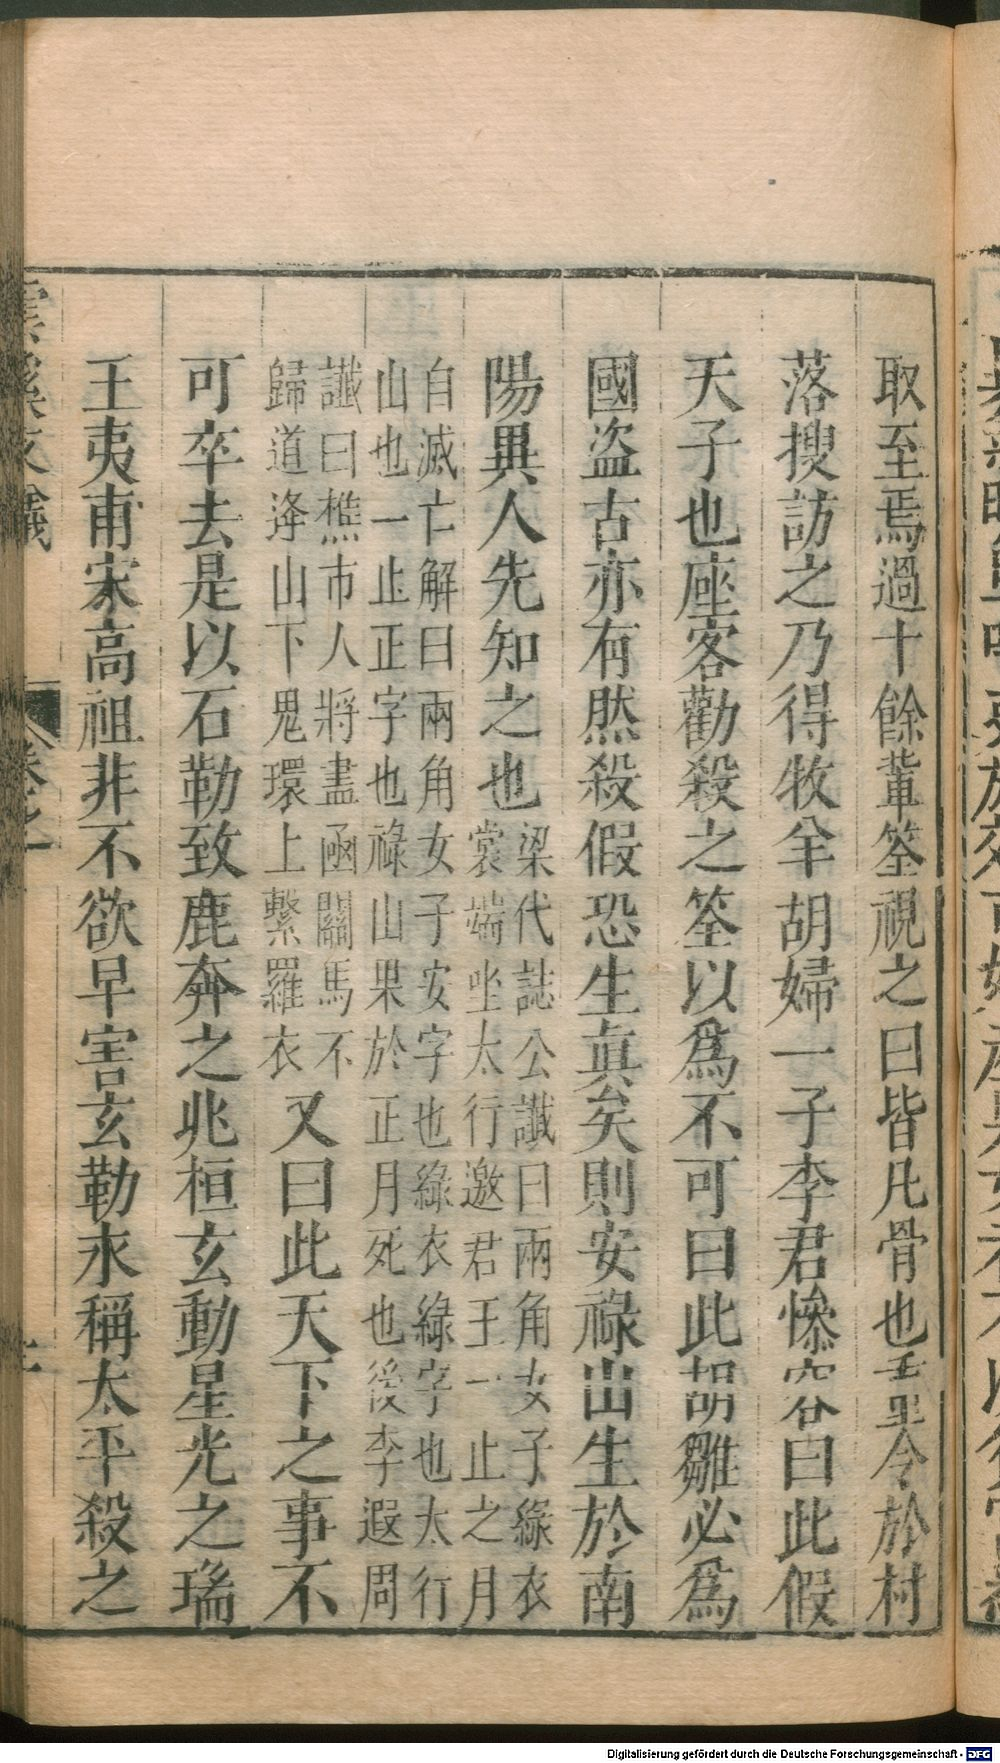 取至焉過十餘輩筌視之曰皆凡骨也重令於村
落搜訪之乃得牧羊胡婦一子李君慘容曰此假
天子也座客勸殺之筌以爲不可曰此胡雛必爲
國盜古亦有然殺假恐生眞矣則安祿山生於南
陽異人先知之也
梁代誌公讖曰兩角女子綠衣
裳端坐太行邀君王一止之月
自滅亡解曰兩角女子安字也綠衣綠字也太行
山也一止正字也祿山果於正月死也後李遐周
讖曰樵市人將盡函關馬不
歸道逄山下鬼環上繫羅衣
又曰此天下之事不
可卒去是以石勒致鹿奔之兆桓玄動星光之瑞
王夷甫宋高祖非不欲早害玄勒永稱太平殺之
雲溪友議
Digitalisierung gefördert durch die Deutsche Forschungsgemeinschaft - DFG